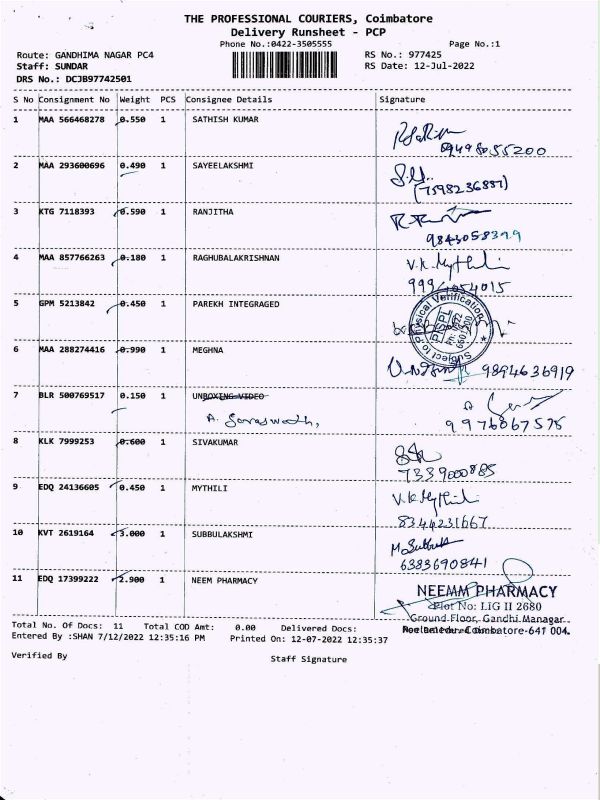 THE PROFESSIONAL COURIERS, Coimbatore
Delivery Runsheet - PCP
Phone No.:0422-3505555 Page No.:1
Route: GANDHIMA NAGAR PC4 RS No.: 977425
Staff: SUNDAR RS Date: 12-Jul-2022
DRS No.: DCJB97742501
S No Consignment No Weight PCS Consignee Details Signature
1 MAA 566468278 0.550 1 SATHISH KUMAR
9498055200
2 MAA 293600696 0.490 1 SAYEELAKSHMI
(7598236887)
3 KTG 7118393 0.590 1 RANJITHA
9843058399
4 MAA 857766263 0.180 1 RAGHUBALAKRISHNAN V.K.Mythili
9994054015
5 GPM 5213842 0.450 1 PAREKH INTEGRAGED
Subject to Physical Verification
PSPL
6 MAA 288274416 0.990 1 MEGHNA
9894636919
7 BLR 500769517 0.150 1 UNBOXING VIDEO
A. Saraswathi,
9976867575
8 KLK 7999253 0.600 1 SIVAKUMAR
7339000885
9 EDQ 24136605 0.450 1 MYTHILI V.K.Mythili
8344231667
10 KVT 2619164 3.000 1 SUBBULAKSHMI
6383690841
11 EDQ 17399222 2.900 1 NEEM PHARMACY NEEMM PHARMACY
Plot No: LIG II 2680
Ground Floor, Gandhi Managar
Total No. Of Docs: 11 Total COD Amt: 0.00 Delivered Docs: Coimbatore-641 004.
Entered By :SHAN 7/12/2022 12:35:16 PM Printed On: 12-07-2022 12:35:37
Verified By Staff Signature